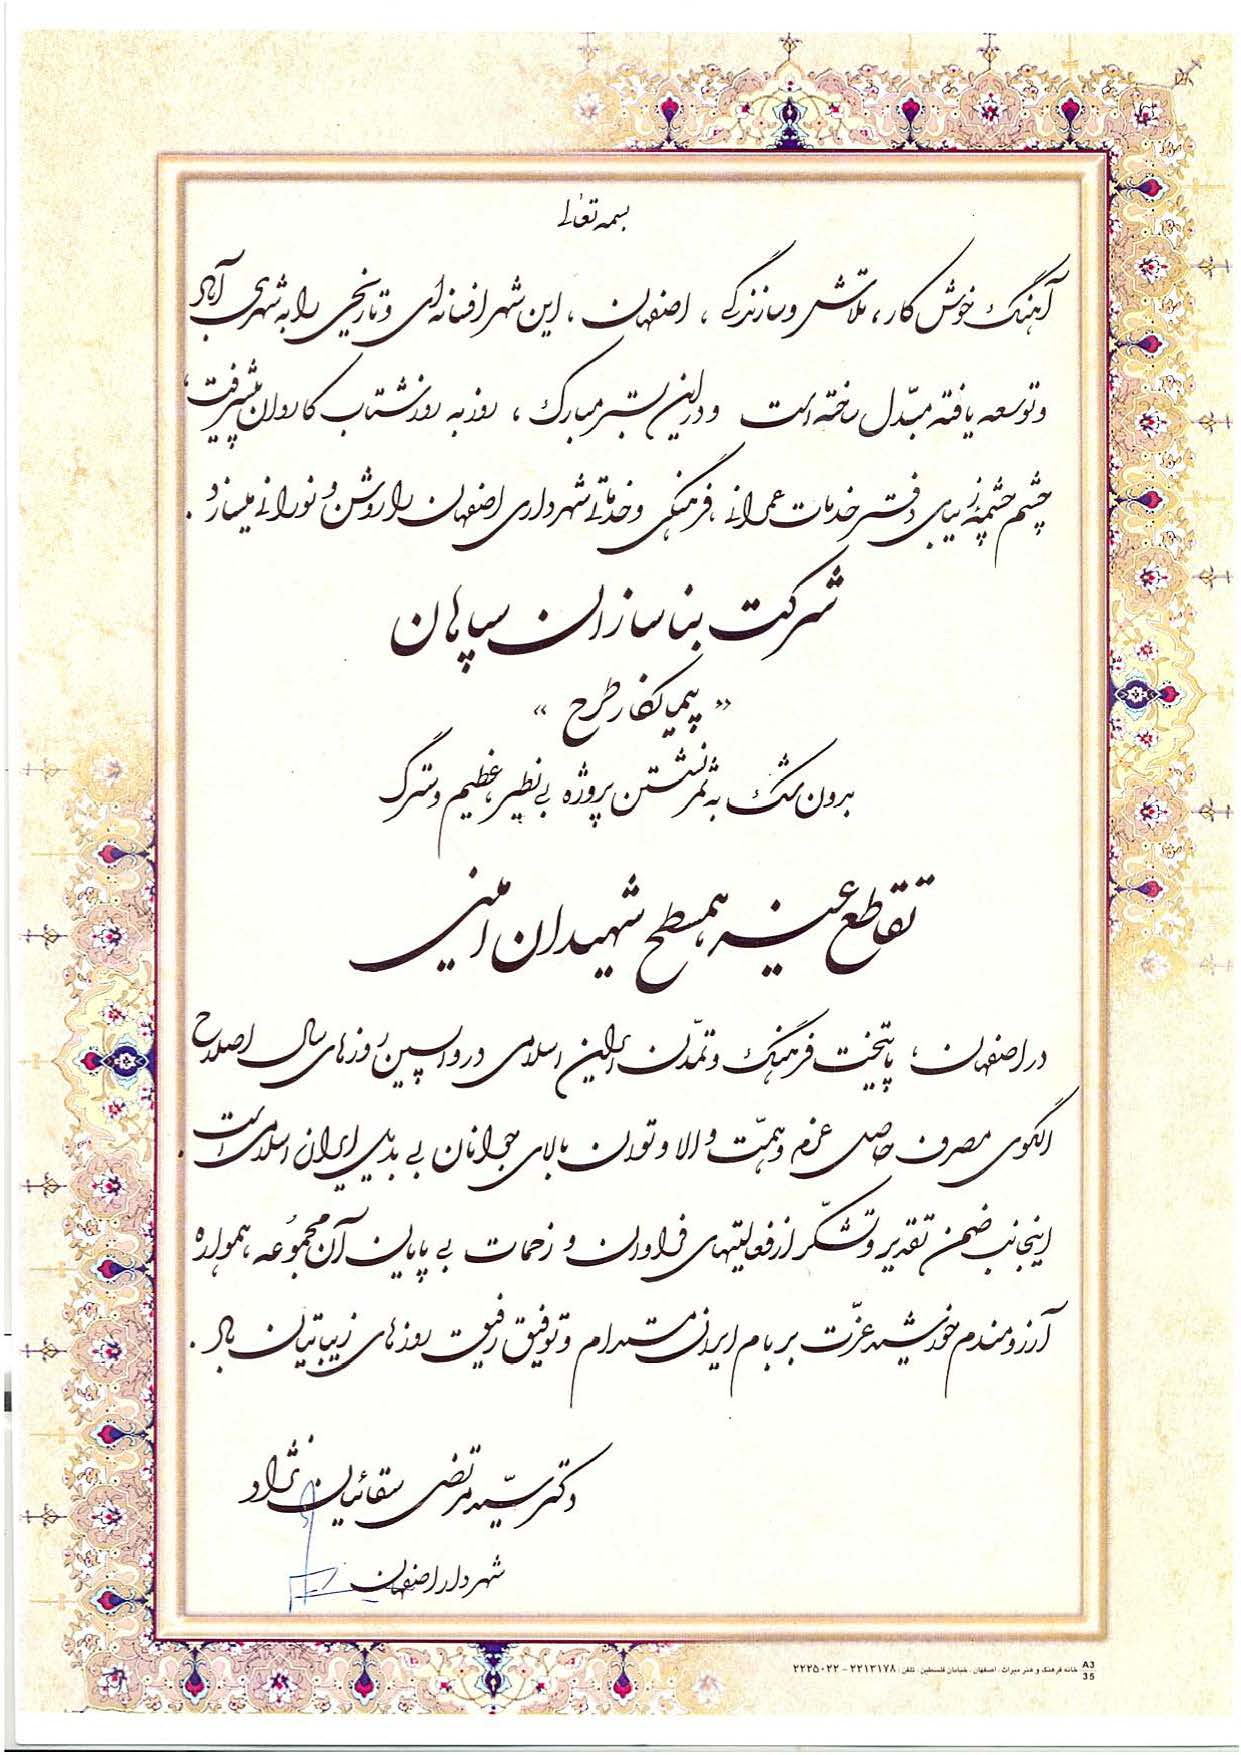 بسمه تعالی
آهنگ خوش کار، تلاش و سازندگی ، اصفهان ، این شهر افسانه‌ای و تاریخی را به شهری آباد
و توسعه یافته مبدّل ساخته است و در این بستر مبارک ، روز به روز شتاب کاروان پیشرفت،
چشم چشمهٔ زیبای دفتر خدمات عمرانی ،فرهنگی و خدماتی شهرداری اصفهان را روشن و نورانی میسازد .
شرکت بناسازان سپاهان
« پیمانکار طرح »
بدون شک به ثمر نشستن پروژه بی نظیر، عظیم و سترگ
تقاطع غیر همسطح شهیدان امینی
در اصفهان ، پایتخت فرهنگ و تمدّن ایران اسلامی در واپسین روزهای سال اصلاح
الگوی مصرف حاصل عزم و همّت والا و توان بالای جوانان بی بدیل ایران اسلامی است .
اینجانب ضمن تقدیر و تشکّر از فعالیتهای فراوان و زحمات بی پایان آن مجموعه ،همواره
آرزومندم خورشید عزّت بر بام ایران مستدام و توفیق رفیق روزهای زیباتیان باد .
دکتر سیّد مرتضی سقائیان نژاد
شهردار اصفهان
A3 خانه فرهنگ و هنر میراث ، اصفهان ، خیابان فلسطین ، تلفن : ۲۲۱۳۱۷۸ – ۲۲۲۵۰۲۲
35